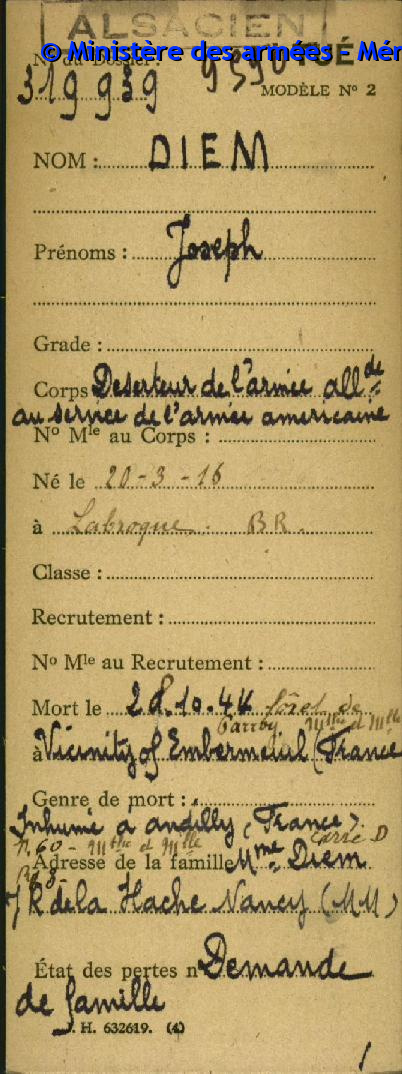 ALSACIEN
© Ministère des armées - Mém
N° du Dossier TUÉ
319 939 9590
MODÈLE N° 2
NOM : DIEM
Prénoms : Joseph
Grade :
Corps Deserteur de l'armée allde
au service de l'armée americaine
N° Mle au Corps :
Né le 20-3-16
à Labroque. BR.
Classe :
Recrutement :
N° Mle au Recrutement :
Mort le 28.10.44 fôret de
Parroy Mthe et Mlle
à Vicinity of Embermenil (France
Genre de mort :
Inhumé à andilly (France)
n. 60 - Mthe et Mlle Carré D
Adresse de la famille Mme Diem
7 R de la Hache Nancy (MM)
État des pertes n° Demande
de famille
J. H. 632619. (4)